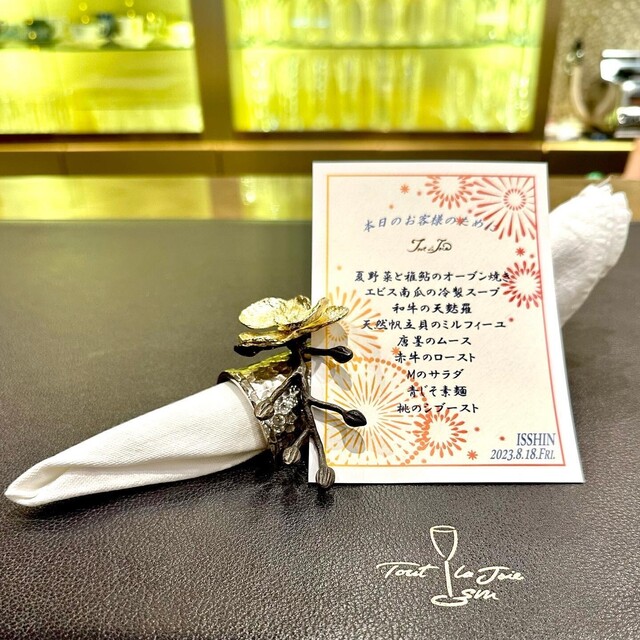 本日のお客様のために
Tout la Joie
夏野菜と稚鮎のオーブン焼き
エビス南瓜の冷製スープ
和牛の天麩羅
天然帆立貝のミルフィーユ
唐墨のムース
赤牛のロースト
Mのサラダ
青じそ素麺
桃のシブースト
ISSHIN
2023.8.18.FRI.
Tout la Joie
sm